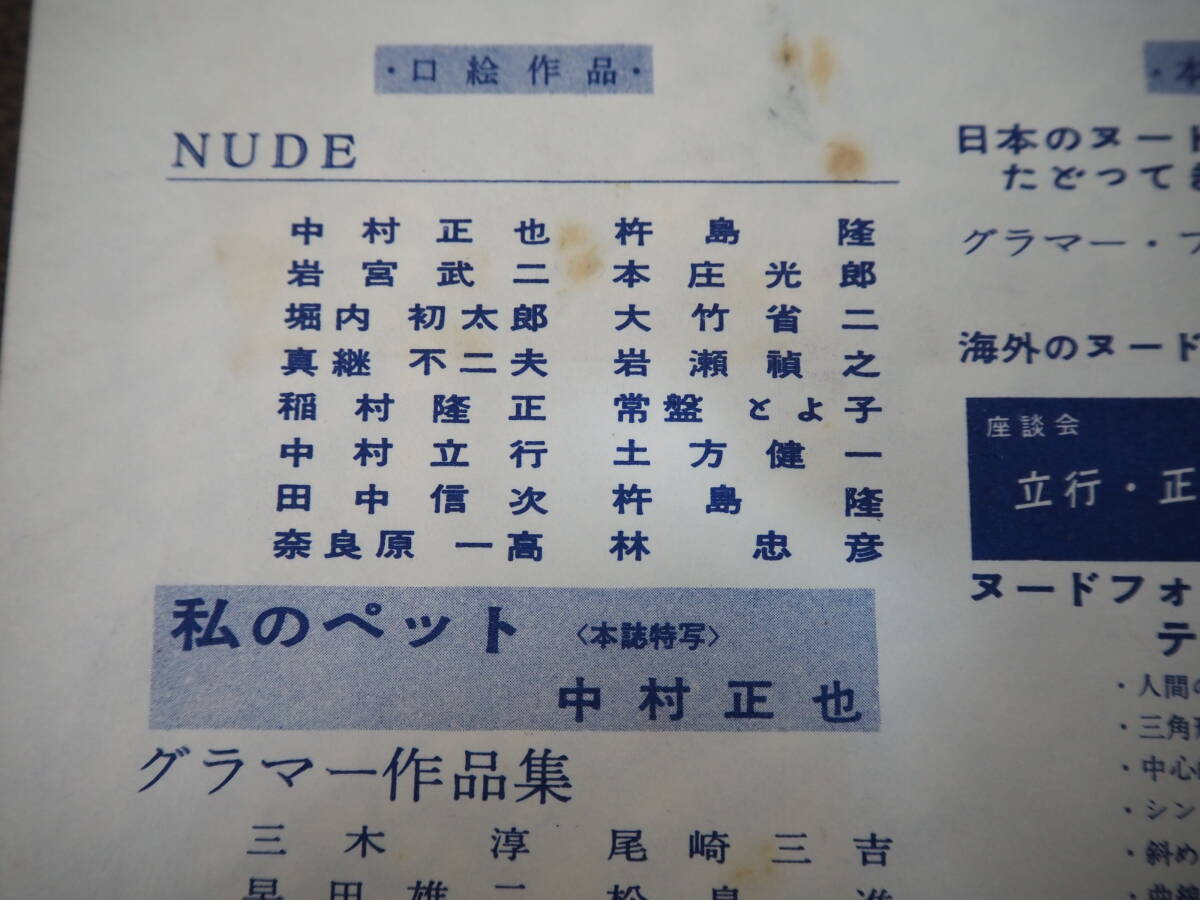 ・口絵作品・
NUDE
中村正也 杵島隆
岩宮武二 本庄光郎
堀内初太郎 大竹省二
真継不二夫 岩瀬禎之
稲村隆正 常盤とよ子
中村立行 土方健一
田中信次 杵島隆
奈良原一高 林忠彦
私のペット 〈本誌特写〉
中村正也
グラマー作品集
三木淳 尾崎三吉
早田雄二 松島進
・本
日本のヌード
たどって
グラマー・フ
海外のヌード
座談会
立行・正
ヌードフォ
テ
・人間の
・三角
・中心
・シン
・斜め
・曲線